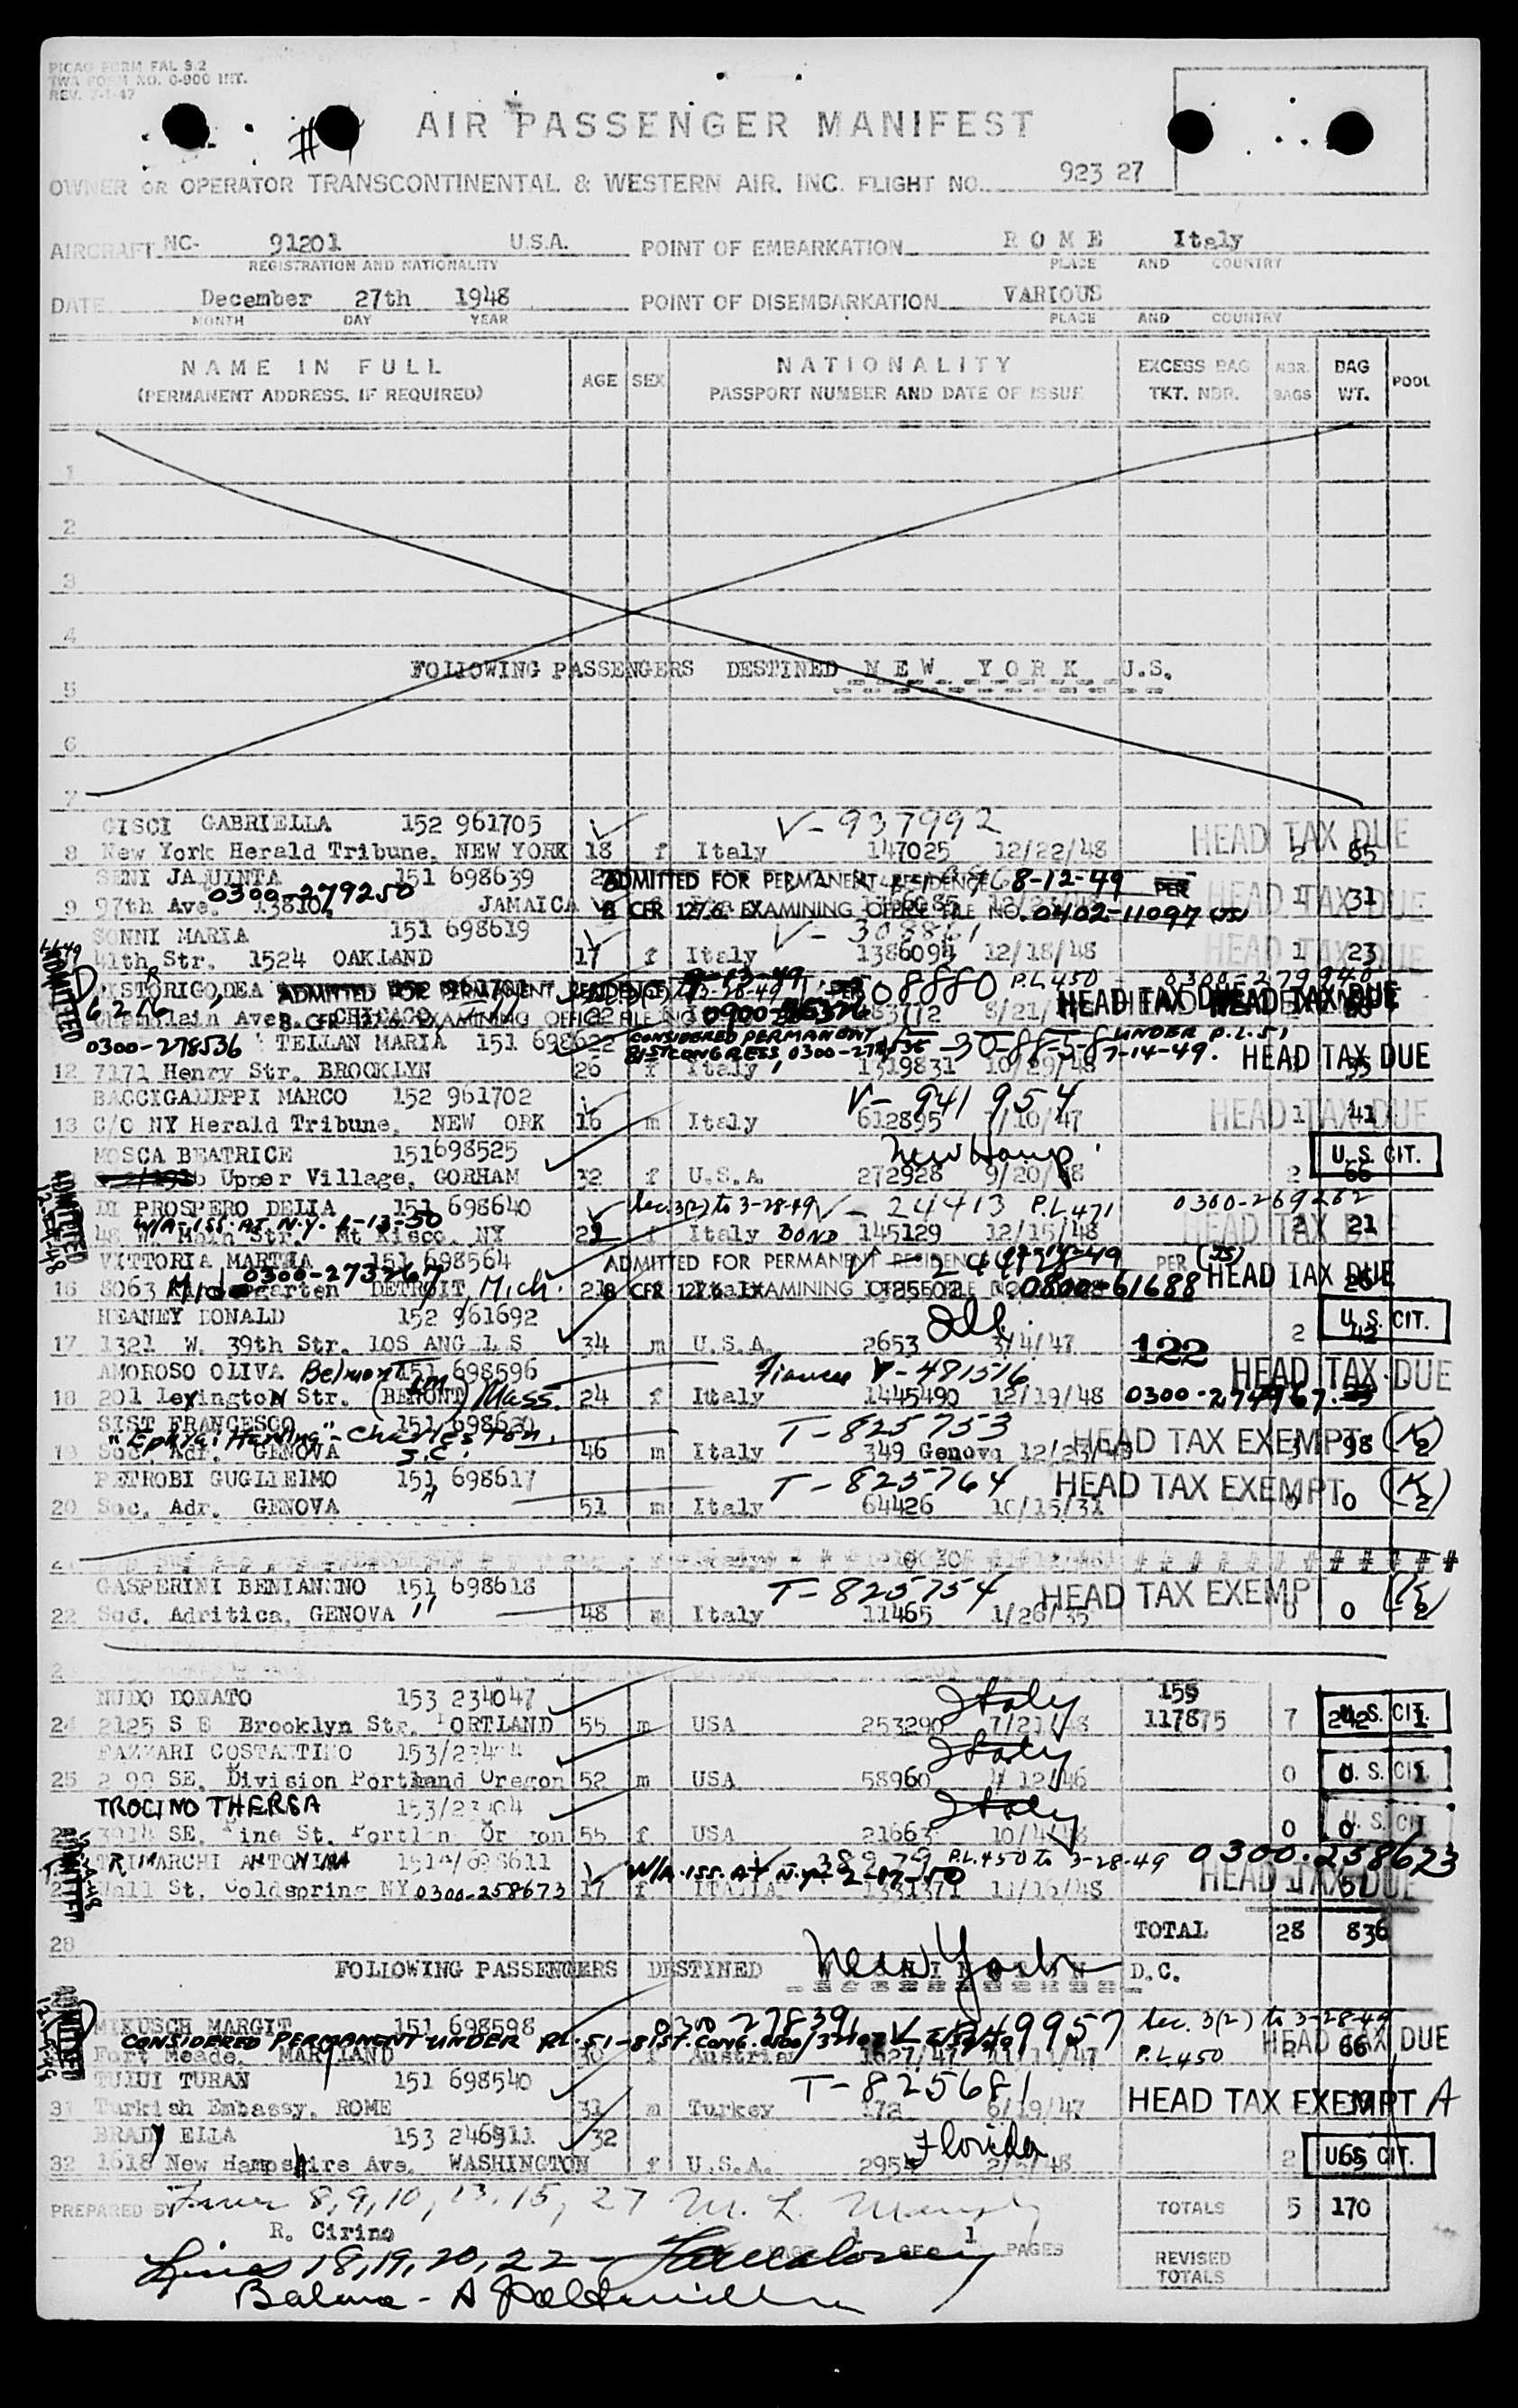 PICAO FORM FAL 9.2
TWA FORM NO. O-900 INT.
REV. 7-1-47
AIR PASSENGER MANIFEST
OWNER OR OPERATOR TRANSCONTINENTAL & WESTERN AIR, INC. FLIGHT NO. 923 27
AIRCRAFT NC- 91201 U.S.A. POINT OF EMBARKATION ROME Italy
REGISTRATION AND NATIONALITY PLACE AND COUNTRY
DATE December 27th 1948 POINT OF DISEMBARKATION VARIOUS
MONTH DAY YEAR PLACE AND COUNTRY
NAME IN FULL AGE SEX NATIONALITY EXCESS BAG NBR. BAG POOL
(PERMANENT ADDRESS, IF REQUIRED) PASSPORT NUMBER AND DATE OF ISSUE TKT. NBR. BAGS WT.
1
2
3
4
FOLLOWING PASSENGERS DESTINED NEW YORK U.S.
5
6
7
CISCI GABRIELLA 152 961705 V-937992 HEAD TAX DUE
8 New York Herald Tribune, NEW YORK 18 f Italy 147025 12/22/48 2 65
SENI JAQUINTA 151 698639 ADMITTED FOR PERMANENT RESIDENCE 8-12-49 PER
0300-279250
9 97th Ave. 13810 JAMAICA 8 CFR 127.6. EXAMINING OFFICE FILE NO. 0402-11097 (JS) HEAD TAX DUE 1 31
SONNI MARIA 151 698619 V-308861
41th Str. 1524 OAKLAND 17 f Italy 1386094 12/18/48 HEAD TAX DUE 1 23
ADMITTED
DISTORIGO DEA ADMITTED FOR PERMANENT RESIDENCE 08880 P.L.450 0300-279940
CHICAGO 22 8 CFR 127.6 EXAMINING OFFICE FILE NO. 8/21/ HEAD TAX DUE
0300-278536 TELLAN MARIA 151 698622 CONSIDERED PERMANENT UNDER P.L.51
81ST CONGRESS 0300-278536 7-14-49. HEAD TAX DUE
12 7171 Henry Str. BROOKLYN 26 f Italy 1319831 10/29/48 35
BACCIGALUPPI MARCO 152 961702 V-941954
13 C/O NY Herald Tribune, NEW ORK 16 m Italy 612895 7/10/47 HEAD TAX DUE 1 41
MOSCA BEATRICE 151698525 New Hamp. U.S. CIT.
Upper Village, GORHAM 32 f U.S.A. 272928 9/20/48 2 66
ADMITTED
DI PROSPERO DELIA 151 698640 Sec. 3(2) to 3-28-49 V-24413 P.L.471 0300-269262
W/A-ISS. AT N.Y. 1-13-50
48 W. Main Str. Mt Kisco, NY 29 f Italy BOND 145129 12/15/48 HEAD TAX DUE 2 21
VITTORIA MARTHA 151 698564 ADMITTED FOR PERMANENT RESIDENCE PER (JS)
0300-273767
16 8063 DETROIT, Mich. 21 8 CFR 127.6. EXAMINING OFFICE FILE NO. 0800-61688 HEAD TAX DUE 26
HEANEY DONALD 152 961692 Ill. U.S. CIT.
17 1321 W. 39th Str. LOS ANG L S 34 m U.S.A. 2653 3/4/47 122 2 42
AMOROSO OLIVA Belmont 151 698596 Fiancee V-481516 HEAD TAX DUE
18 201 Lexington Str. (BEMONT) Mass. 24 f Italy 1445490 12/19/48 0300-274967
SIST FRANCESCO 151 698620 T-825753
Charleston, S.C.
19 Soc. Adr. GENOVA 46 m Italy 349 Genova 12/23/48 HEAD TAX EXEMPT 3 98 (K2)
PETROBI GUGLIELMO 151 698617 T-825764 HEAD TAX EXEMPT
20 Soc. Adr. GENOVA " 51 m Italy 64426 10/15/31 0 0 (K2)
GASPERINI BENIAMINO 151 698618 T-825754 HEAD TAX EXEMPT
22 Soc. Adritica, GENOVA " 48 m Italy 11465 1/26/35 0 0 (K2)
NUDO DONATO 153 234047 Italy 155
24 2125 S E Brooklyn Str. PORTLAND 55 m USA 253290 7/21/48 117875 7 242 U.S. CIT.
FAZZARI COSTANTINO Italy
25 SE. Division Portland Oregon 52 m USA 58960 12/46 0 0 U.S. CIT.
TROCINO THERSA Italy
SE. Pine St. Portland Oregon 55 f USA 21663 10/4/48 0 0 U.S. CIT.
ADMITTED
TRIMARCHI ANTONINA 38979 P.L.450 to 3-28-49 0300.258673
Wall St. Coldspring NY 0300-258673 17 f W/A-ISS. AT N.Y. 2-17-50 ITALIA 1331371 11/16/48 HEAD TAX DUE 1 51
28 TOTAL 28 836
FOLLOWING PASSENGERS DESTINED WASHINGTON D.C.
New York
ADMITTED
MIKUSCH MARGIT 151 698598 0300 278391 V-249957 Sec. 3(2) to 3-28-49
CONSIDERED PERMANENT UNDER P.L.-51-81ST. CONG.
Fort Meade, MARYLAND 30 f Austria 1627/47 11/11/47 P.L.450 HEAD TAX DUE 2 66
TULUI TURAN 151 698540 T-825681
31 Turkish Embassy, ROME 31 m Turkey 172 6/19/47 HEAD TAX EXEMPT A
BRADY ELLA 153 246911 32 Florida
32 1618 New Hampshire Ave. WASHINGTON f U.S.A. 2954 2/5/48 2 65 U.S. CIT.
PREPARED BY 8, 9, 10, 13, 15, 27 TOTALS 5 170
R. Cirino
PAGE 1 OF 1 PAGES
REVISED TOTALS
Lines 18, 19, 20, 22 -